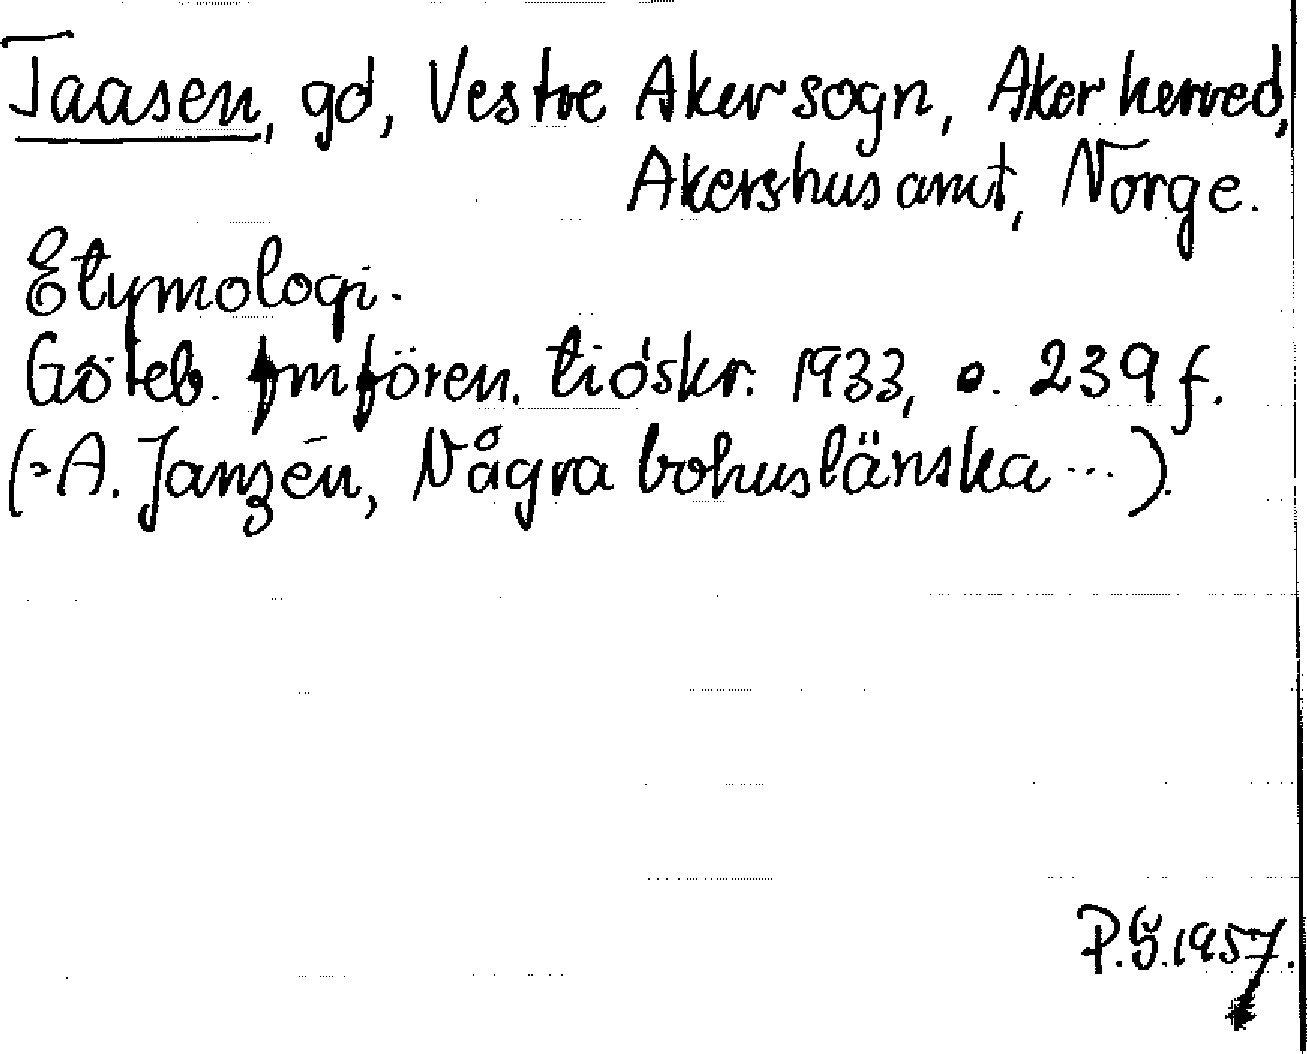 Taasen, gd, Vestre Aker sogn, Aker herred,
Akershus amt, Norge.
Etymologi.
Göteb. fmfören. tidskr. 1933, s. 239 f.
(= A. Janzén, Några bohuslänska ...).
P.G. 1957.